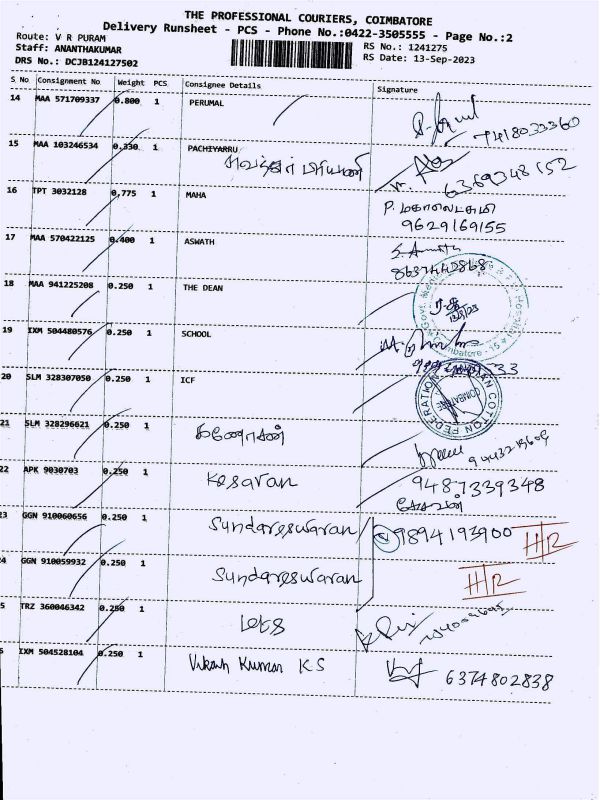 THE PROFESSIONAL COURIERS, COIMBATORE
Delivery Runsheet - PCS - Phone No.:0422-3505555 - Page No.:2
Route: V R PURAM
Staff: ANANTHAKUMAR
DRS No.: DCJB124127502
RS No.: 1241275
RS Date: 13-Sep-2023
S No Consignment No Weight PCS Consignee Details Signature
14 MAA 571709337 0.800 1 PERUMAL
7418033360
15 MAA 103246534 0.330 1 PACHIYARRU
6369348152
16 TPT 3032128 0.775 1 MAHA P. மகாலட்சுமி
9629169155
17 MAA 570422125 0.400 1 ASWATH
8637442868
18 MAA 941225208 0.250 1 THE DEAN
13/9/23
19 IXM 504480576 0.250 1 SCHOOL
20 SLM 328307050 0.250 1 ICF
COTTON FEDERATION
COIMBATORE
21 SLM 328296621 0.250 1 கணேசன்
22 APK 9030703 0.250 1 Kesavan 9487339348
கேசவன்
23 GGN 910060656 0.250 1 Sundareswaran 9894193900 H/R
4 GGN 910059932 0.250 1 Sundareswaran H/R
5 TRZ 360046342 0.250 1 
IXM 504528104 0.250 1 Vikash Kumar K S 6374802838